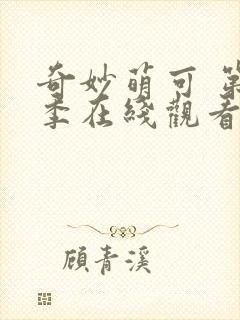 奇妙萌可 第
季在綫觀看
顧青溪